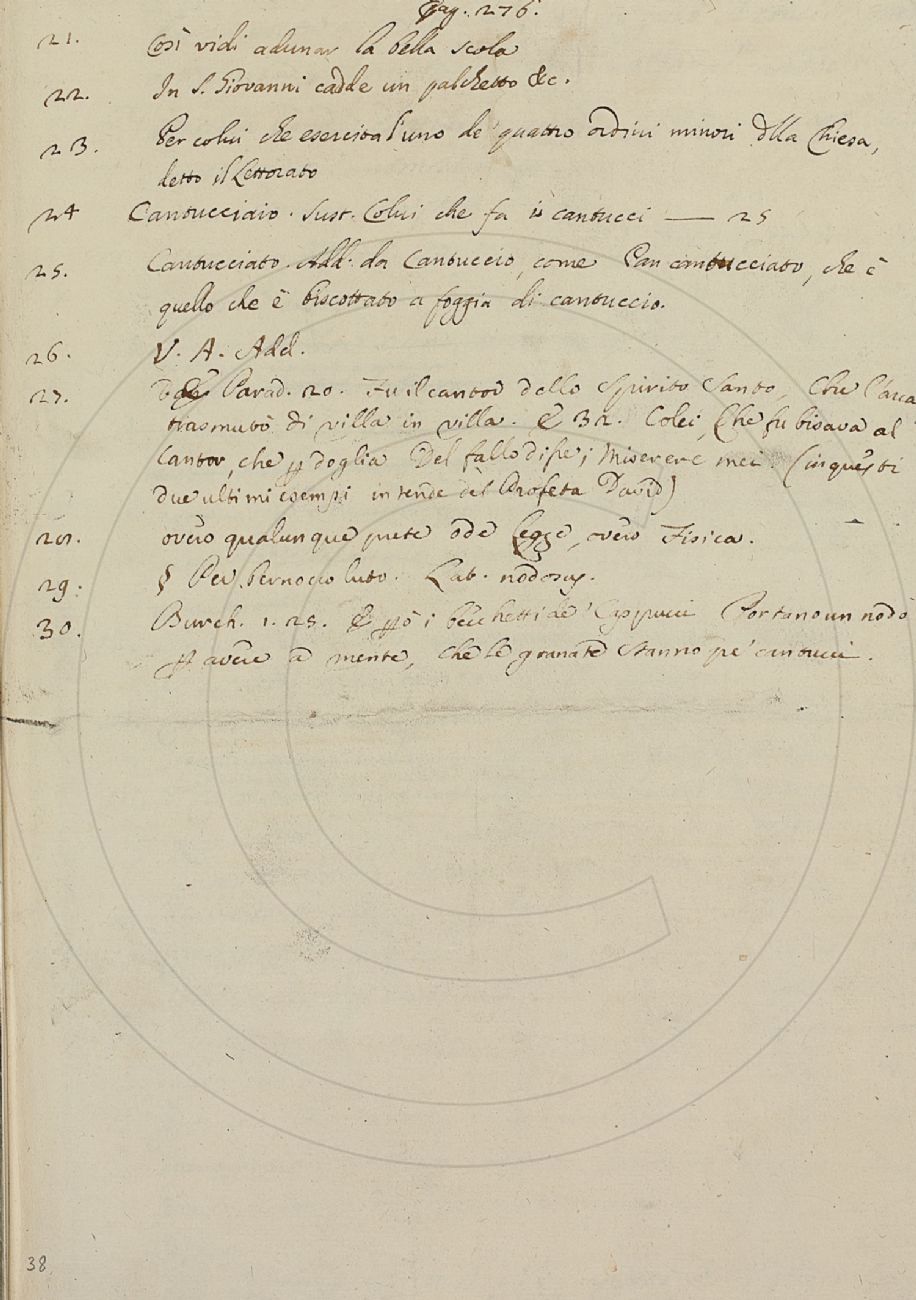 Pag. 276.
21. Così vidi adunar la bella scola
22. In S. Giovanni cadde un palchetto &c.
23. Per colui che esercita l'uno de' quattro ordini minori dlla Chiesa,
detto il Lettorato
24 Cantucciaio. Sust. Colui che fa i cantucci — 25
25. Cantucciato. Add. da Cantuccio, come Pan cantucciato, che è
quello che è biscottato a foggia di cantuccio.
26. V. A. Add.
27. Parad. 20. Fu il cantor dello Spirito Santo, Che l'arca
trasmutò di villa in villa. E 32. Colei, Che fu bisava al
Cantor, che p doglia Del fallo disse; Miserere mei. (in questi
due ultimi esempi intende del Profeta David)
28. overo qualunque prete ode Legge, overo Fisica.
29. § Per bernoccoluto. Lat. nodosus.
30. Burch. 1. 25. E pò i becchetti de' Cappucci Portano un nodo
p avere a mente, Che le granate stanno pe' cantucci.
38